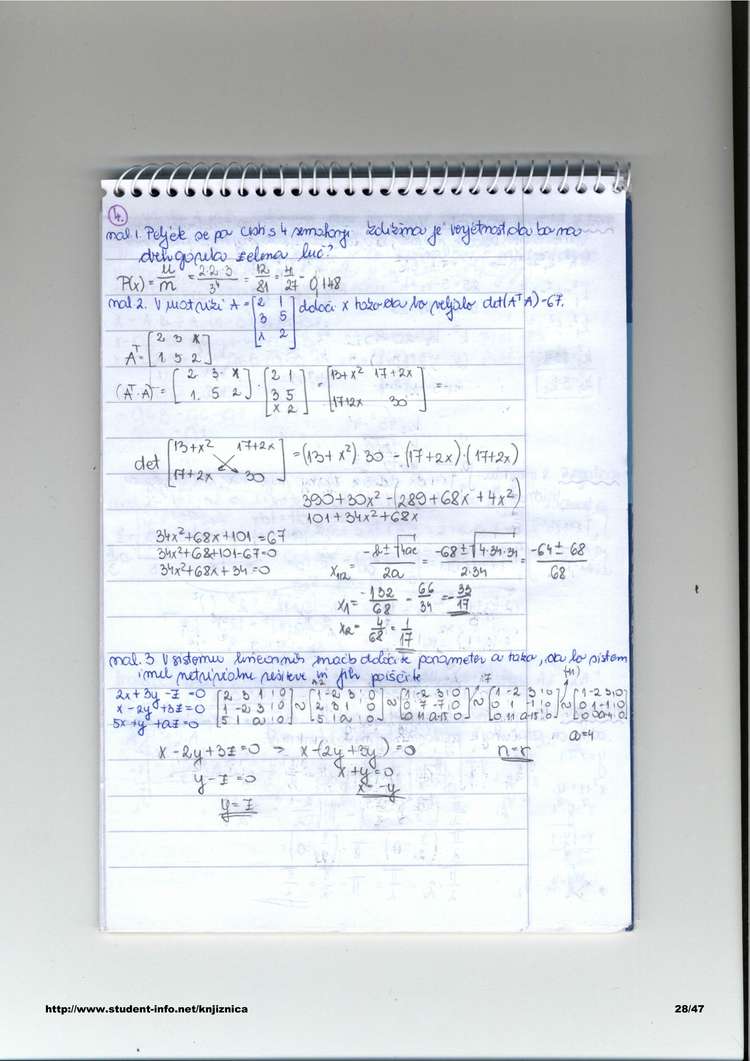 4.
nal 1. Peljek se po s 4 semaforji kolikšna je verjetnost da bo na
dveh gorela zelena luč?
P(x) = u/m = 2·2·3/3⁴ = 12/81 = 4/27 - 0,148
nal 2. V matriki A = [2 1; 3 5; x 2] določi x tako da bo veljalo det(AᵀA)-67.
Aᵀ = [2 3 x; 1 5 2]
(Aᵀ·A) = [2 3 x; 1 5 2] · [2 1; 3 5; x 2] = [13+x² 17+2x; 17+2x 30] =
det [13+x² 17+2x; 17+2x 30] = (13+x²) 30 - (17+2x)·(17+2x)
390+30x² - (289+68x+4x²)
101+34x²+68x
34x²+68x+101=67
34x²+68+101-67=0
34x²+68x+34=0
x₁/₂ = = -68±√4·34·34/2·34 = -64±68/68
x₁ = -132/68 - 66/34 = -33/17
x₂ = 4/68 = 1/17
nal. 3 V sistemu linearnih enačb določite parameter a tako, da bo sistem
imel netrivialne rešitve in jih poiščite
:7
2x+3y-z=0
x-2y+3z=0
5x+y+az=0
[2 3 1 0; 1 -2 3 0; 5 1 a 0] ~ [1 -2 3 0; 2 3 1 0; 5 1 a 0] ~ [1 -2 3 0; 0 7 -7 0; 0 11 a-15 0] ~ [1 -2 3 0; 0 1 -1 0; 0 11 a-15 0] ~ [1 -2 3 0; 0 1 -1 0; 0 0 a-4 0]
a=4
x-2y+3z=0 ⇒ x-(2y+3y)=0
n=r
y-z=0
x+y=0
x=-y
y=z
http://www.student-info.net/knjiznica
28/47